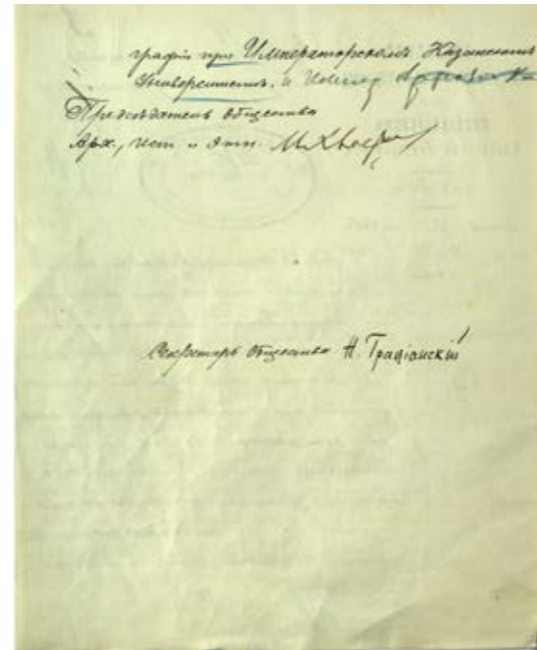 графiи при Императорскомъ Казанскомъ
Университетѣ. и
Предсѣдатель Общества
Арх., Ист. и Этн. М. Хвос
Секретарь Общества Н. Грацiанскiй